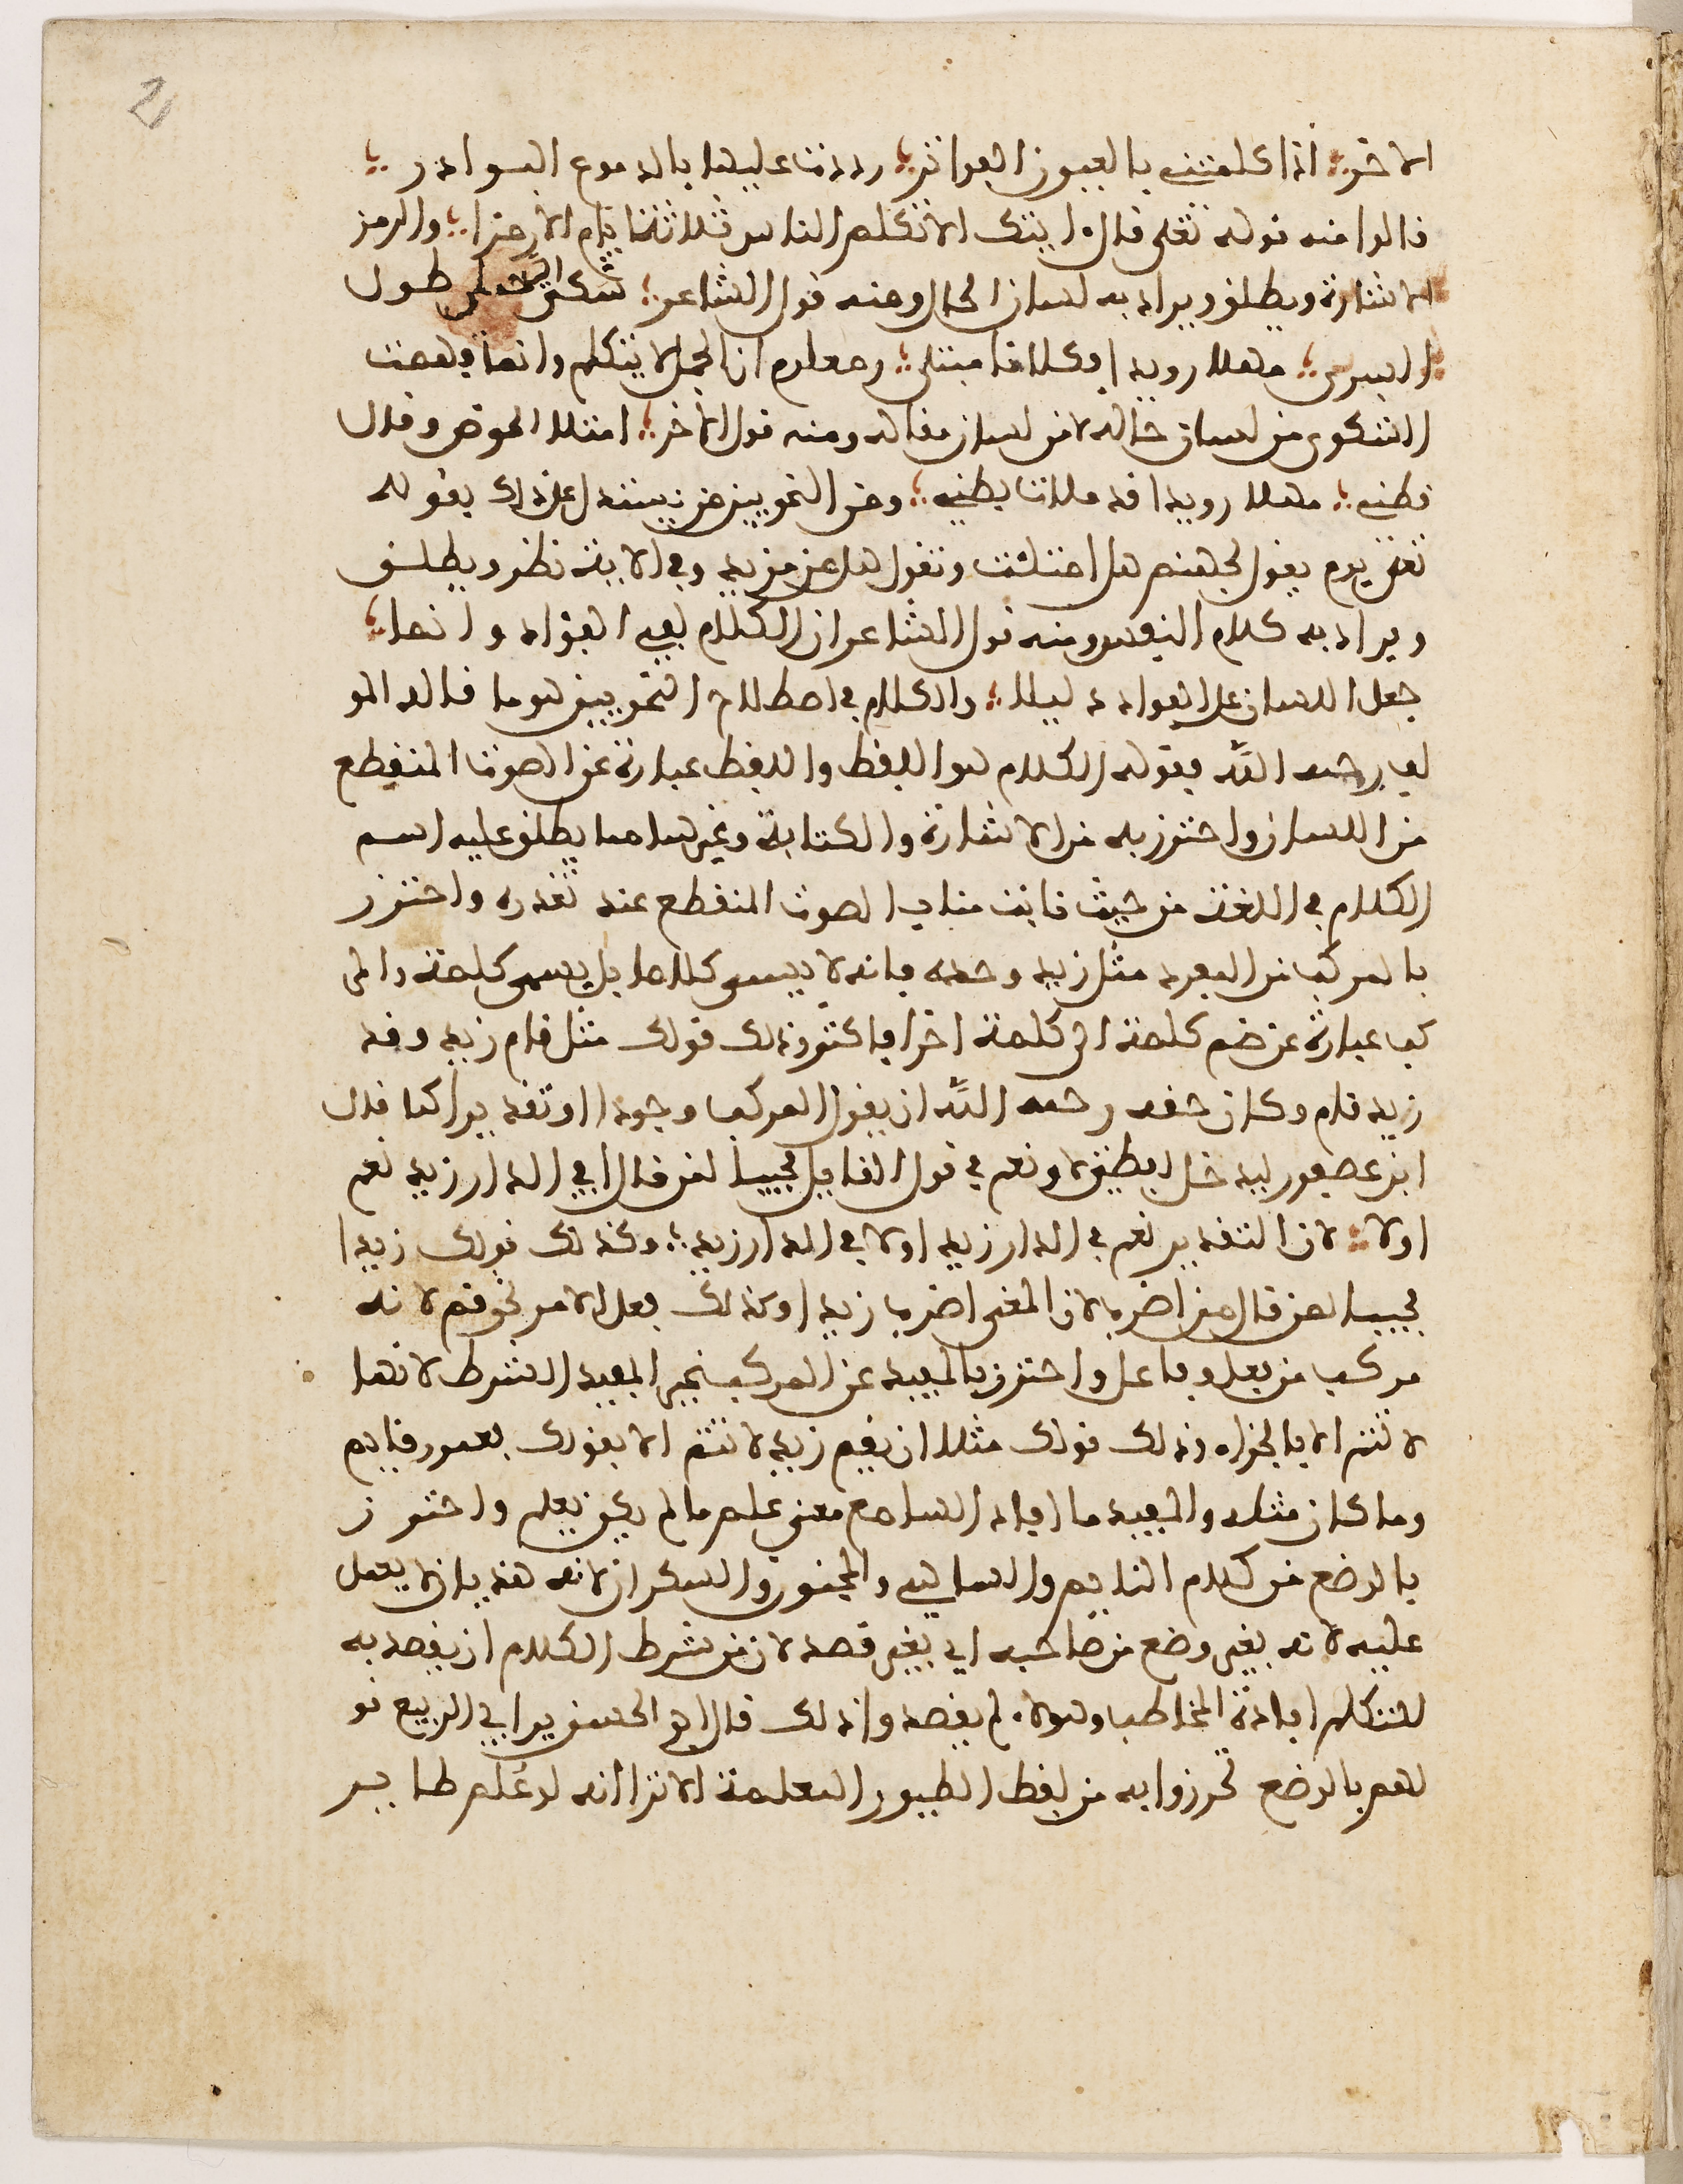 2
الاخر؛ اذا كلمتني بالعيون الفواتر؛ رددت عليها بالدموع البوادر؛
قالوا منه قوله تعلى قال ايتك الا تكلم الناس ثلاثة ايام الا رمزا؛ والرمز
الاشارة ويطلق ويراد به لسان الحال ومنه قول الشاعر؛ شكى الي جملي طول
السرى؛ مهلا رويدا فكلانا مبتلى؛ ومعلوم ان الجمل لا يتكلم وانما فهمت
الشكوى من لسان حاله لا من لسان مقاله ومنه قول الاخر؛ امتلا الحوض وقال
قطني؛ مهلا رويدا قد ملات بطني؛ ومن النحويين من يستدل على ذلك بقوله
تعلى يوم يقول لجهنم هل امتلئت وتقول هل من مزيد وفي الاية نظر ويطلق
ويراد به كلام النفس ومنه قول الشاعر ان الكلام لفي الفؤاد وانما؛
جعل اللسان على الفواد دليلا؛ والكلام في اصطلاح النحويين هو ما قاله المو
لف رحمه الله فقوله الكلام هو اللفظ واللفظ عبارة عن الصوت المنقطع
من اللسان واحترز به من الاشارة والكتابة وغيرهما مما يطلق عليه اسم
الكلام في اللغة من حيث نابت مناب الصوت المنقطع عند تعذره واحترز
بالمركب من المفرد مثل زيد وحده فانه لا يسمى كلاما بل يسمى كلمة والمر
كب عبارة عن ضم كلمة الى كلمة اخرا فاكثر وذلك قولك مثل قام زيد وقد
زيد قام وكان حقه رحمه الله ان يقول المركب وجودا او تقديرا كما قال
ابن عصفور ليدخل لفظتي لا ونعم في قول القايل مجيبا لمن قال افي الدار زيد نعم
او لا؛ لان التقدير نعم في الدار زيد او لا في الدار زيد؛ وكذلك قولك زيدا
مجيبا لمن قال من اضرب لان المعنى اضرب زيدا وكذلك فعل الامر نحو قم لانه
مركب من فعل وفاعل واحترز بالمفيد عن المركب غير المفيد الشرط لانها
لا تتم الا بالجزاء وذلك قولك مثلا ان يقم زيد لا تتم الا بقولك فعمور قايم
وما كان مثله والمفيد ما افاد السامع معنى علم ما لم يكن يعلم واحترز
بالوضع من كلام النايم والساهي والمجنون والسكران لانه هذيان لا يعمل
عليه لانه بغير وضع من صاحبه اي بغير قصد لان من شرط الكلام ان يقصد به
المتكلم افادة المخاطب وهولاء لم يقصدوا ذلك قال ابو الحسن بن ابي الربيع قو
لهم بالوضع تحرزوا به من لفظ الطيور المعلمة الا ترا انه لو علم طاير